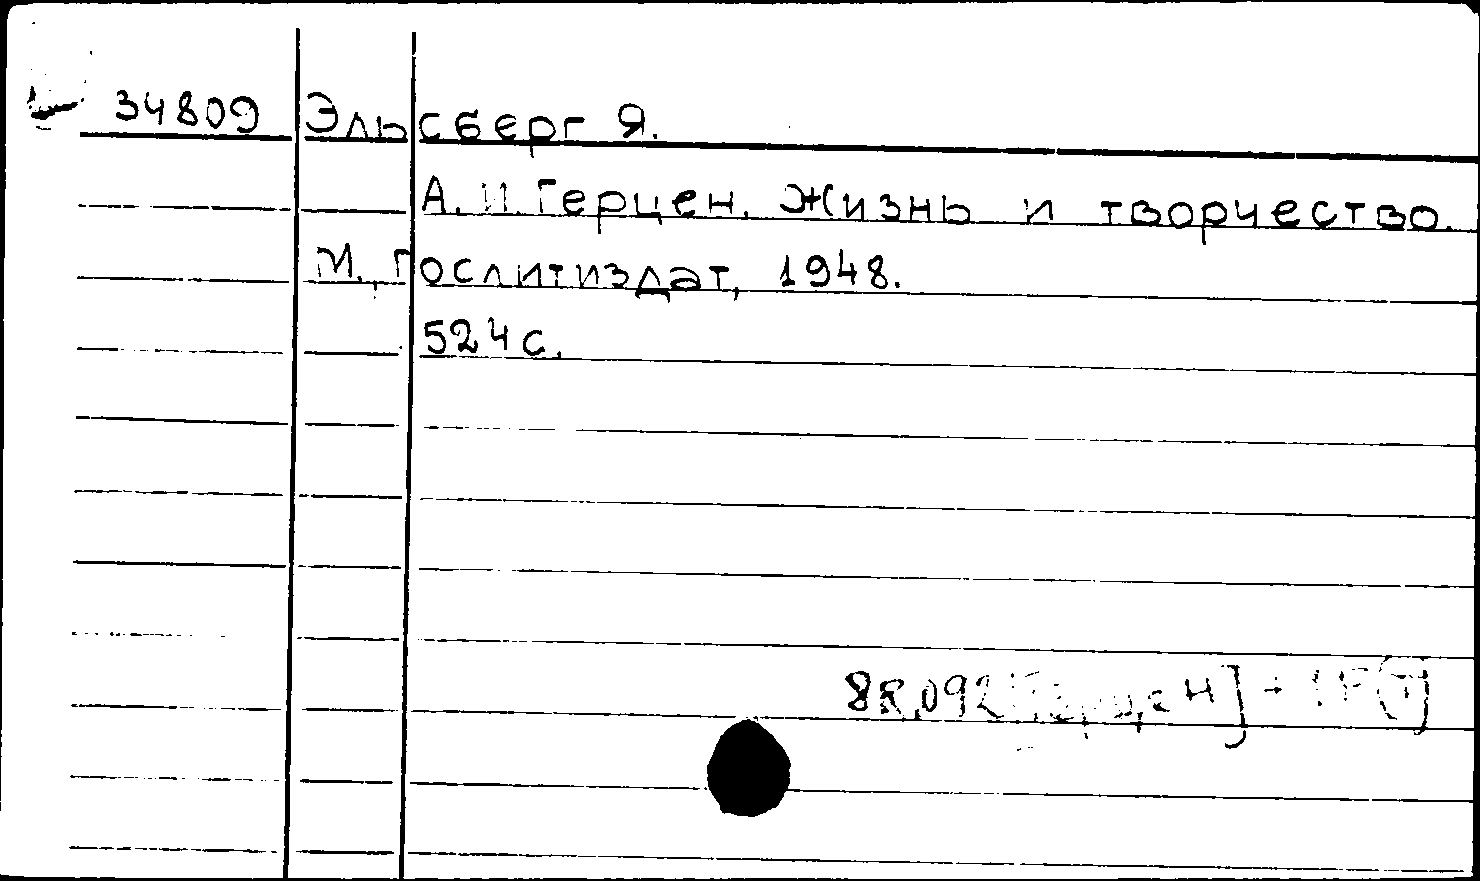 34809 Эльсберг Я.
А. И. Герцен. Жизнь и творчество.
М., Гослитиздат, 1948.
524 с.
8Р,092[Герцен]